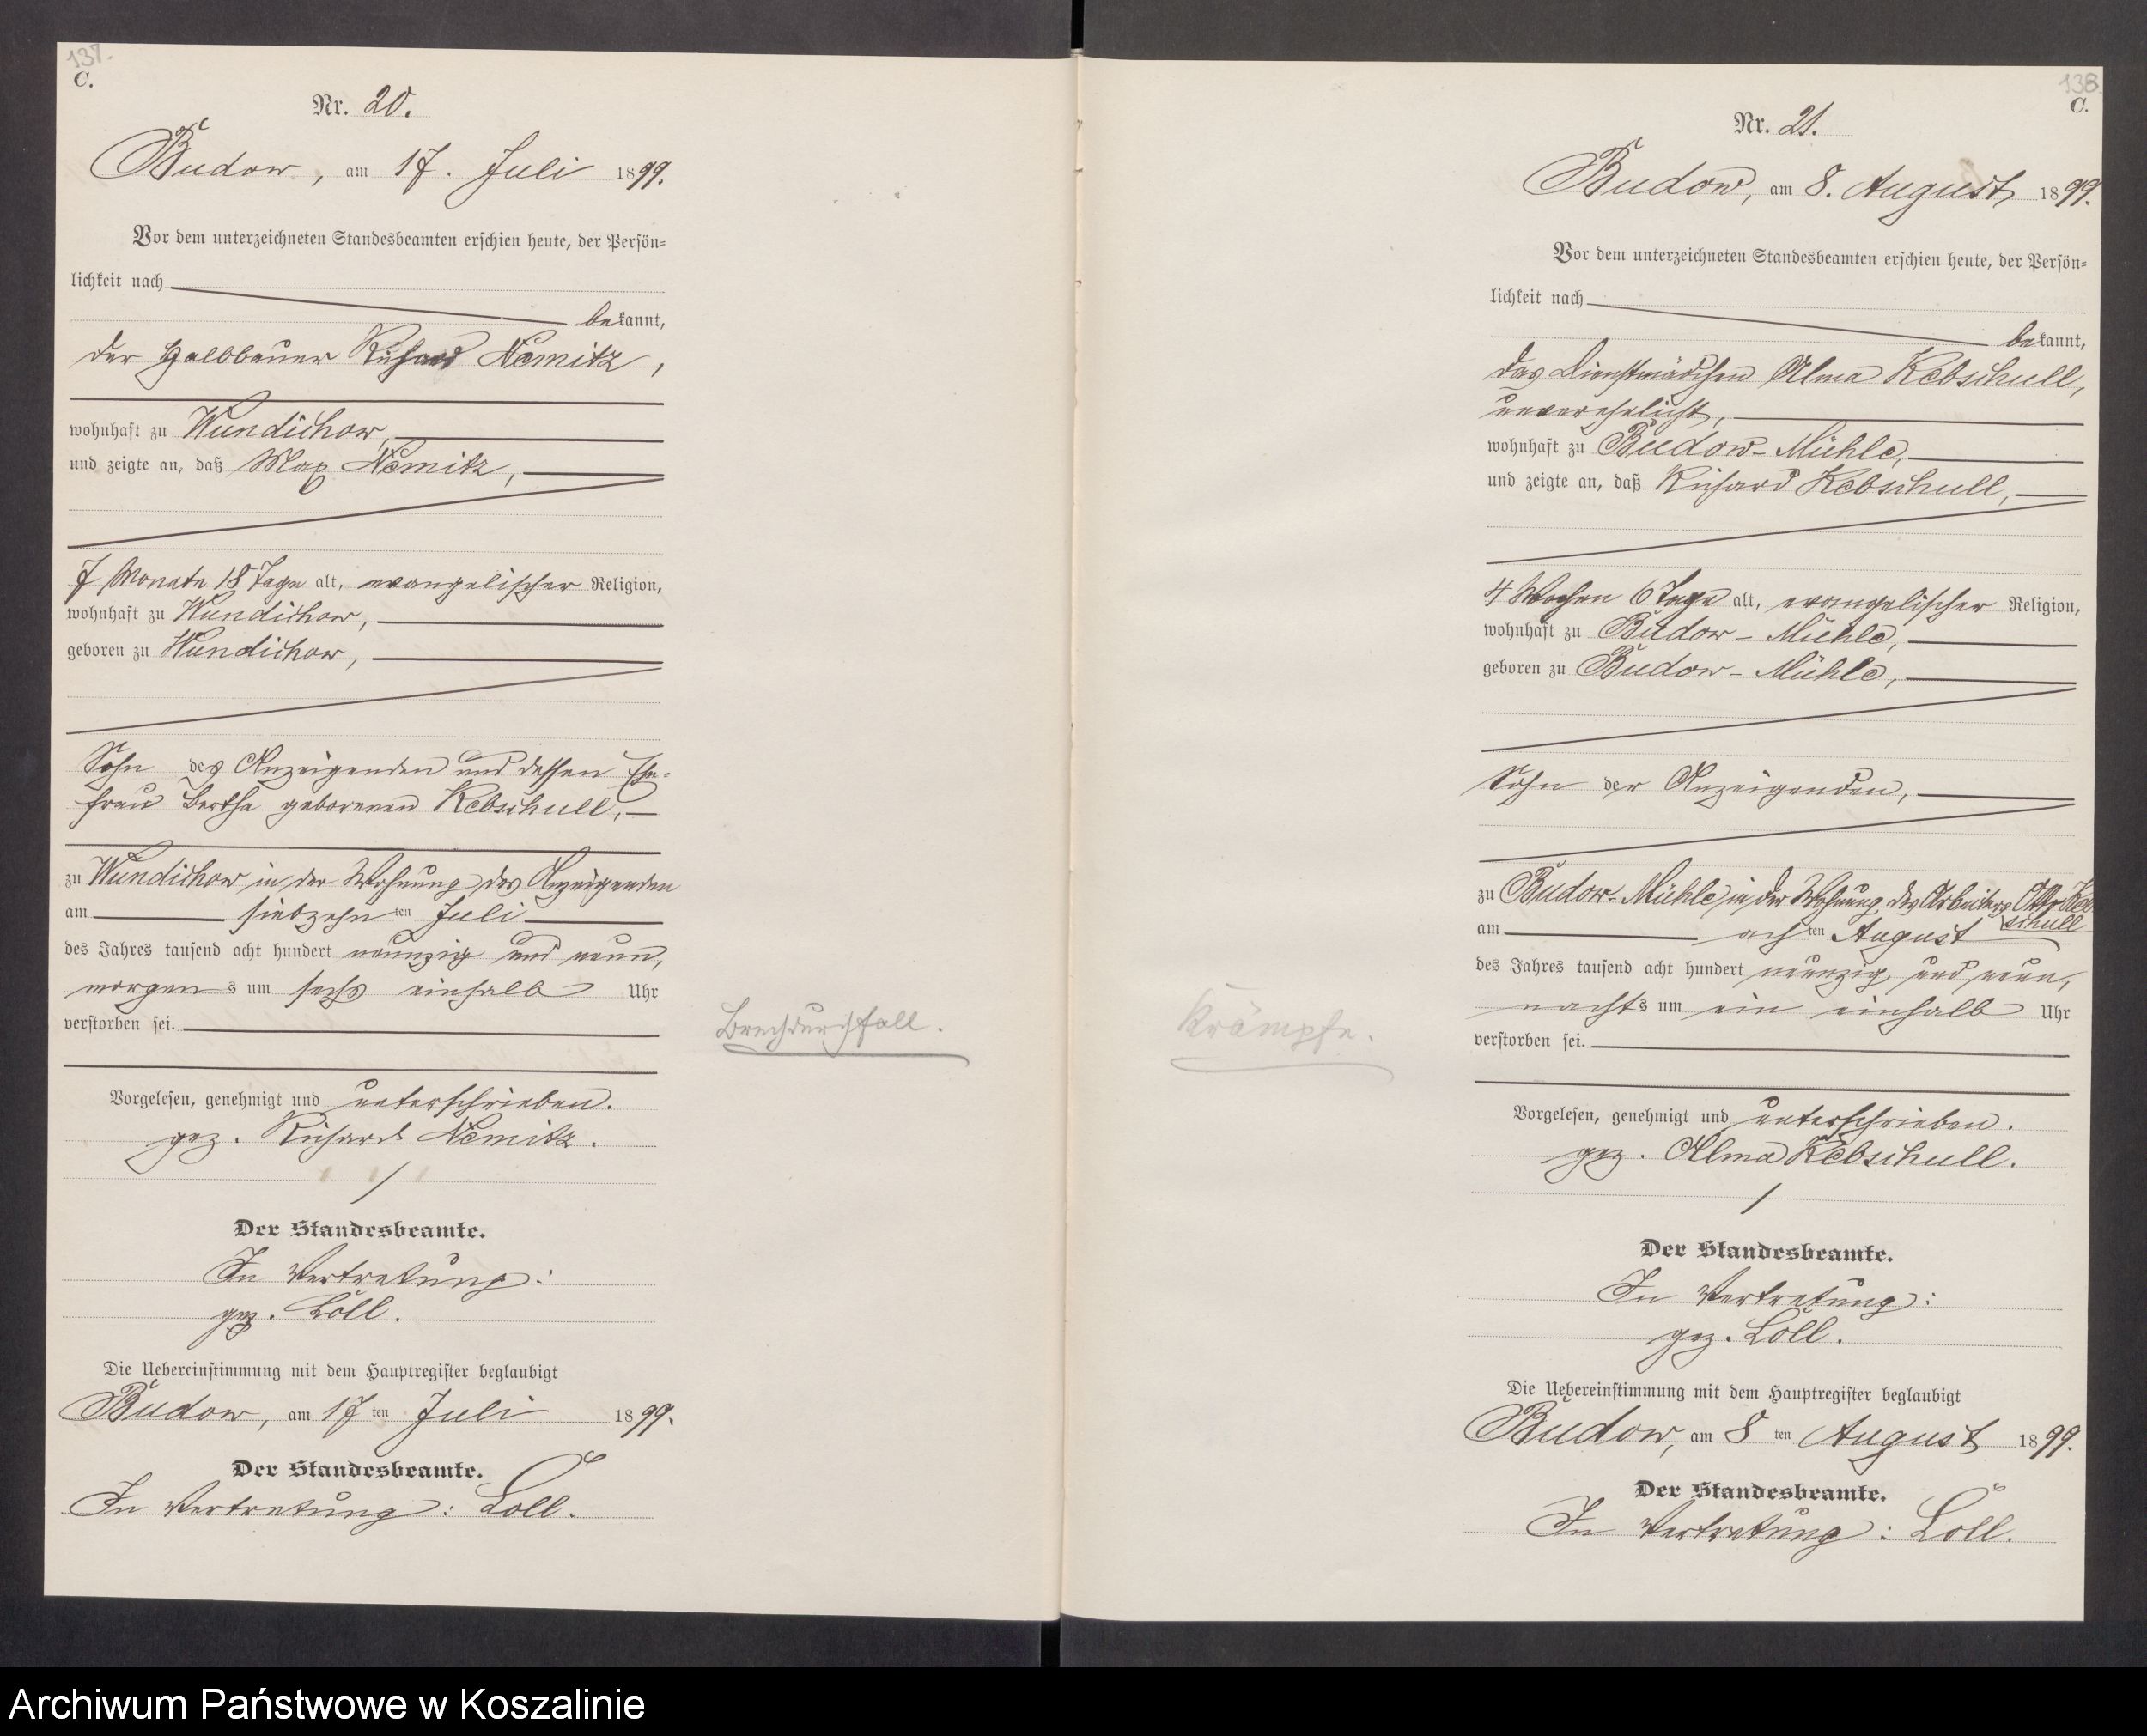 137.
C.
Nr. 20.
Budow, am 17. Juli 1899.
Vor dem unterzeichneten Standesbeamten erschien heute, der Persön-
lichkeit nach
bekannt,
der Halbbauer Richard Nemitz,
wohnhaft zu Wundichow,
und zeigte an, daß Max Nemitz,
7 Monate 18 Tage alt, evangelischer Religion,
wohnhaft zu Wundichow,
geboren zu Wundichow,
Sohn des Anzeigenden und dessen Ehe-
frau Bertha geborenen Kebschull,
zu Wundichow in der Wohnung des Anzeigenden
am siebzehnten Juli
des Jahres tausend acht hundert neunzig und neun,
morgens um sechs einhalb Uhr
verstorben sei.
Brechdurchfall.
Vorgelesen, genehmigt und unterschrieben.
gez. Richard Nemitz.
Der Standesbeamte.
In Vertretung:
gez. Löll.
Die Uebereinstimmung mit dem Hauptregister beglaubigt
Budow, am 17ten Juli 1899.
Der Standesbeamte.
In Vertretung: Löll.
138.
C.
Nr. 21.
Budow, am 8. August 1899.
Vor dem unterzeichneten Standesbeamten erschien heute, der Persön-
lichkeit nach
bekannt,
das Dienstmädchen Alma Kebschull,
unverehelicht,
wohnhaft zu Budow-Mühle,
und zeigte an, daß Richard Kebschull,
4 Wochen 6 Tage alt, evangelischer Religion,
wohnhaft zu Budow-Mühle,
geboren zu Budow-Mühle,
Sohn der Anzeigenden,
zu Budow-Mühle in der Wohnung des Arbeiters Otto Keb
schull
am achten August
des Jahres tausend acht hundert neunzig und neun,
nachts um ein einhalb Uhr
verstorben sei.
Krämpfe.
Vorgelesen, genehmigt und unterschrieben.
gez. Alma Kebschull.
Der Standesbeamte.
In Vertretung:
gez. Löll.
Die Uebereinstimmung mit dem Hauptregister beglaubigt
Budow, am 8ten August 1899.
Der Standesbeamte.
In Vertretung: Löll.
Archiwum Państwowe w Koszalinie